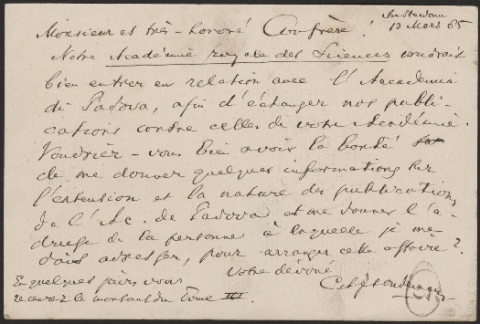 Amsterdam
13 Mars 65
Monsieur et très-honoré Confrère!
Notre Académie royale des Sciences voudrait
bien entrer en relation avec l'Accademia
di Padova, afin d'échanger nos publi-
cations contre celles de votre Académie.
Voudriez-vous bien avoir la bonté
de me donner quelques informations sur
l'extension et la nature des publications
de l'Ac. de Padova et me donner l'a-
dresse de la personne à laquelle je me
dois adresser, pour arranger cette affaire?
Votre dévoué
En quelques jours vous
recevrez le montant du tome III.